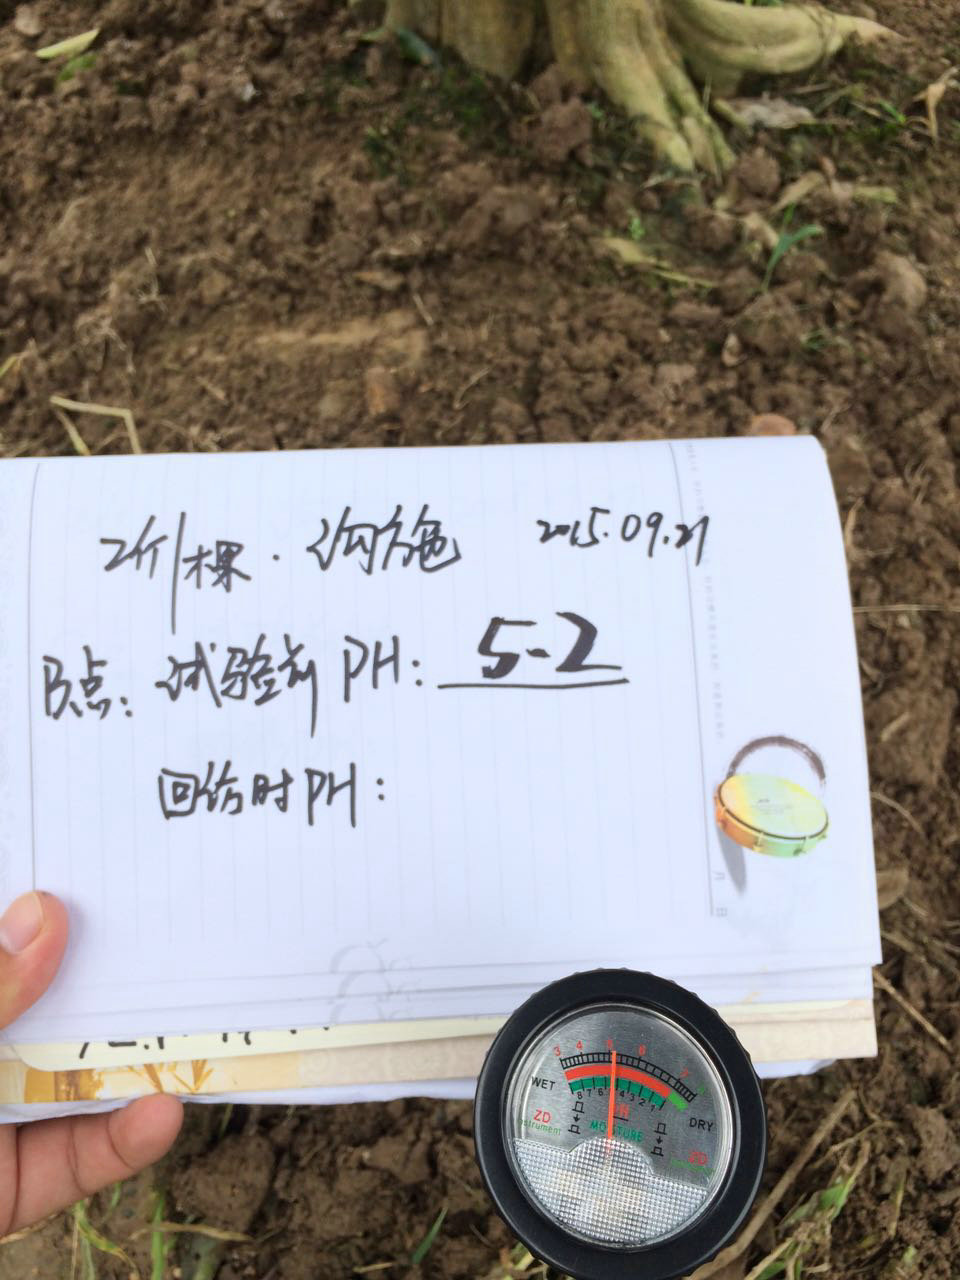 2斤/棵·沟施 2015.09.21
B点: 试验前 PH: 5-2
回访时PH:
月
日
3 4 5 6 7 8
WET
DRY
8 7 6 4 3 2 1
PH
MOISTURE
ZD
instrument
ZD